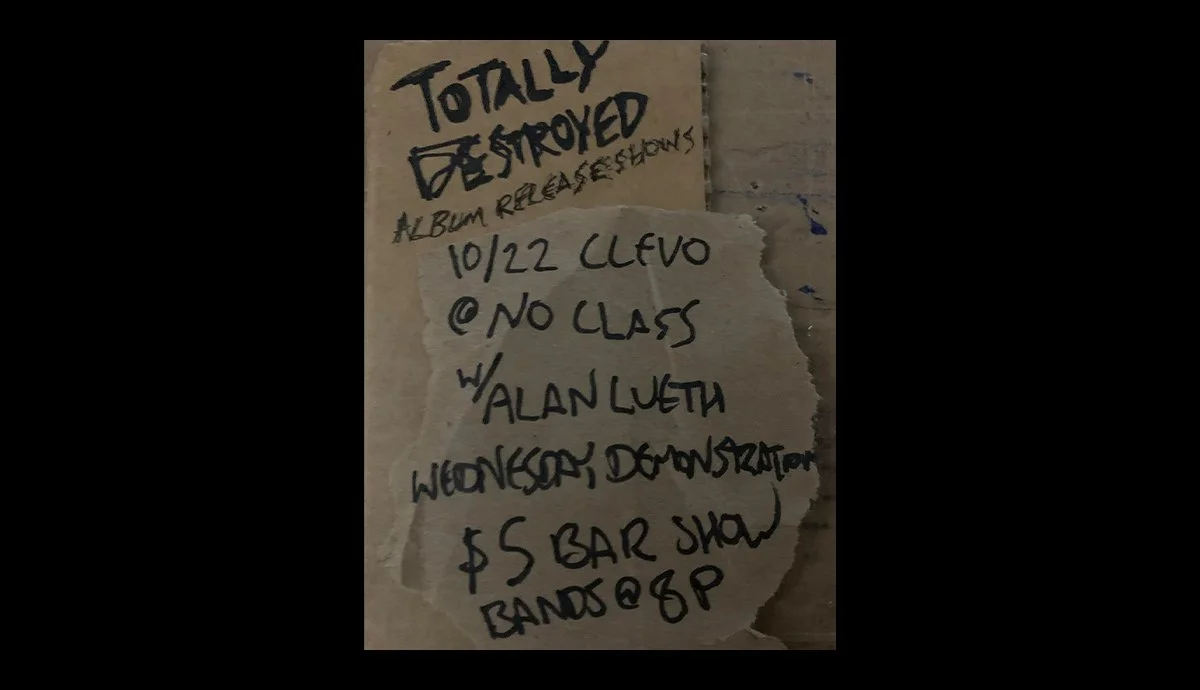 TOTALLY
DESTROYED
ALBUM RELEASE SHOWS
10/22 CLEVO
@ NO CLASS
W/ ALAN LUETH
WEDNESDAY, DEMONSTRATION
$5 BAR SHOW
BANDS @ 8P